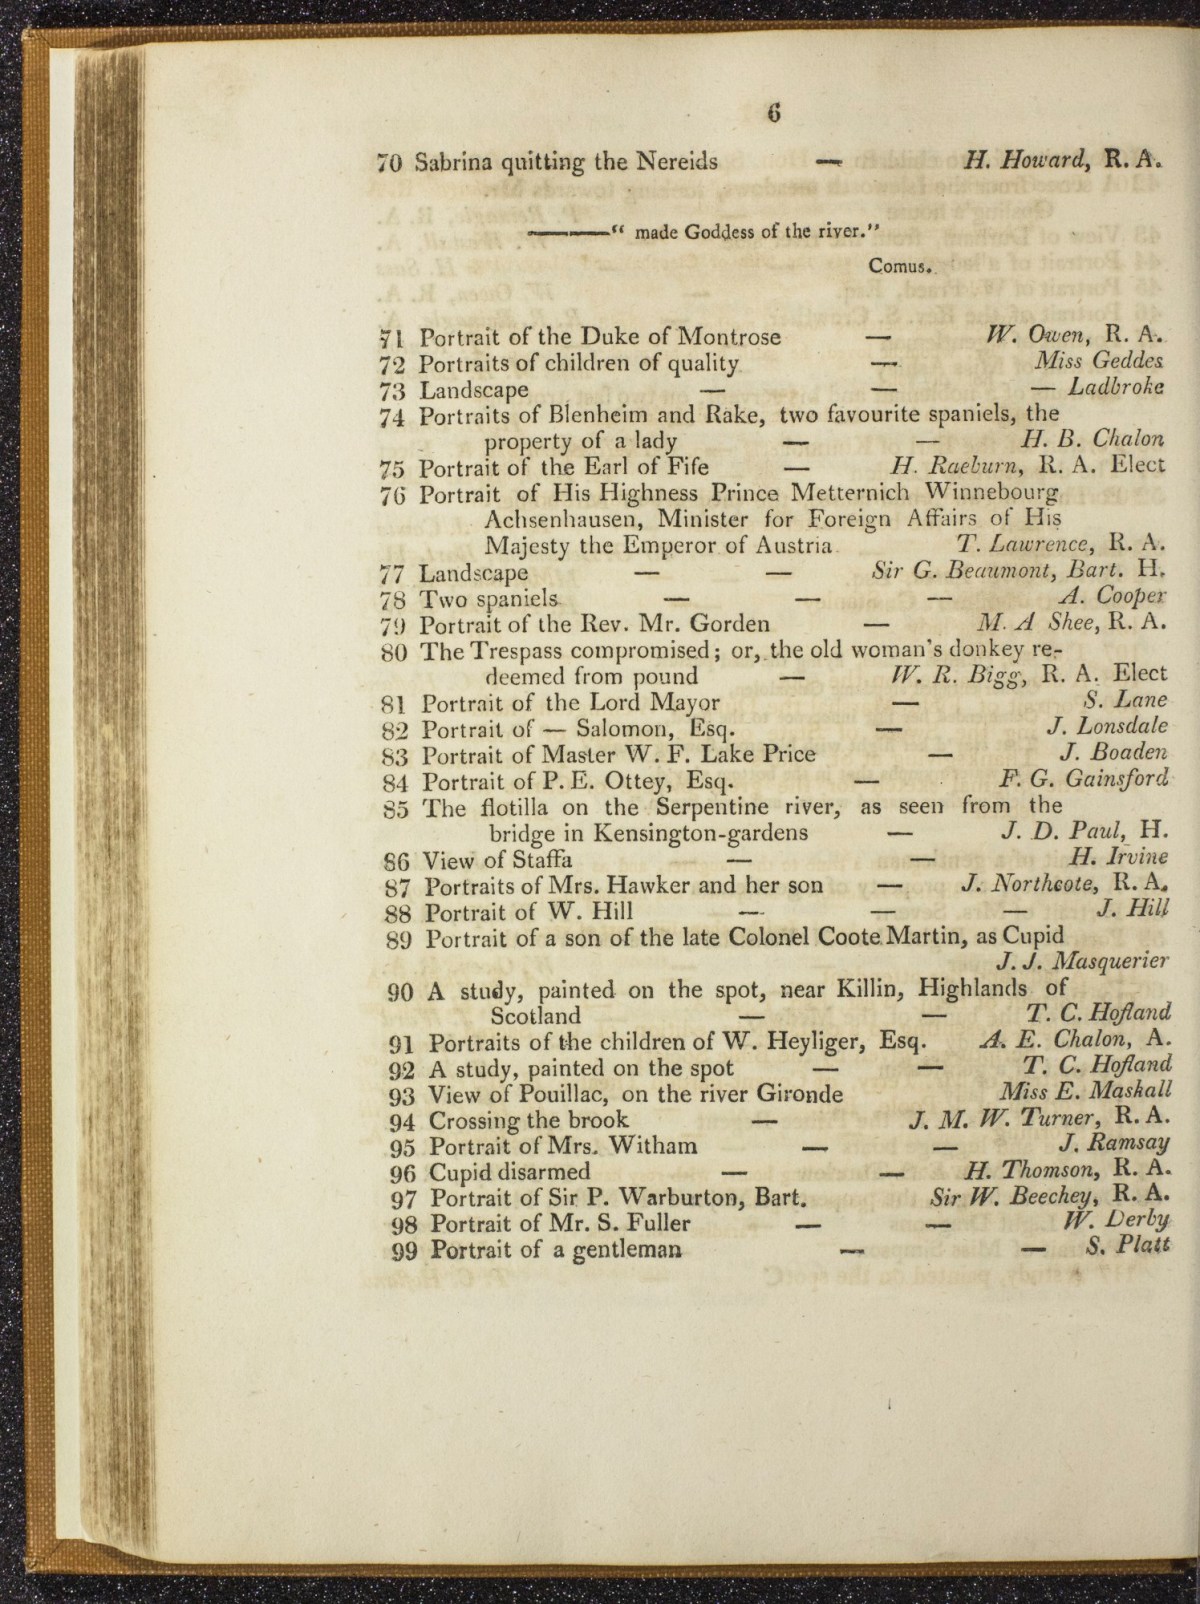 6
70 Sabrina quitting the Nereids — H. Howard, R. A.
———“ made Goddess of the river.”
Comus.
71 Portrait of the Duke of Montrose — W. Owen, R. A.
72 Portraits of children of quality — Miss Geddes
73 Landscape — — — Ladbroke
74 Portraits of Blenheim and Rake, two favourite spaniels, the
property of a lady — — H. B. Chalon
75 Portrait of the Earl of Fife — H. Raeburn, R. A. Elect
76 Portrait of His Highness Prince Metternich Winnebourg
Achsenhausen, Minister for Foreign Affairs of His
Majesty the Emperor of Austria T. Lawrence, R. A.
77 Landscape — — Sir G. Beaumont, Bart. H.
78 Two spaniels — — — A. Cooper
79 Portrait of the Rev. Mr. Gorden — M. A Shee, R. A.
80 The Trespass compromised; or, the old woman's donkey re-
deemed from pound — W. R. Bigg, R. A. Elect
81 Portrait of the Lord Mayor — S. Lane
82 Portrait of — Salomon, Esq. — J. Lonsdale
83 Portrait of Master W. F. Lake Price — J. Boaden
84 Portrait of P. E. Ottey, Esq. — F. G. Gainsford
85 The flotilla on the Serpentine river, as seen from the
bridge in Kensington-gardens — J. D. Paul, H.
86 View of Staffa — — H. Irvine
87 Portraits of Mrs. Hawker and her son — J. Northcote, R. A.
88 Portrait of W. Hill — — — J. Hill
89 Portrait of a son of the late Colonel Coote Martin, as Cupid
J. J. Masquerier
90 A study, painted on the spot, near Killin, Highlands of
Scotland — — T. C. Hofland
91 Portraits of the children of W. Heyliger, Esq. A. E. Chalon, A.
92 A study, painted on the spot — — T. C. Hofland
93 View of Pouillac, on the river Gironde Miss E. Maskall
94 Crossing the brook — J. M. W. Turner, R. A.
95 Portrait of Mrs. Witham — — J. Ramsay
96 Cupid disarmed — — H. Thomson, R. A.
97 Portrait of Sir P. Warburton, Bart. Sir W. Beechey, R. A.
98 Portrait of Mr. S. Fuller — — W. Derby
99 Portrait of a gentleman — — S. Platt